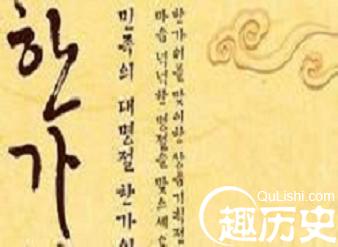 한가
민족의 대명절 한가
한가위를 맞이한 상품기획전
마음 넉넉한 명절을
QuLishi.com
趣历史